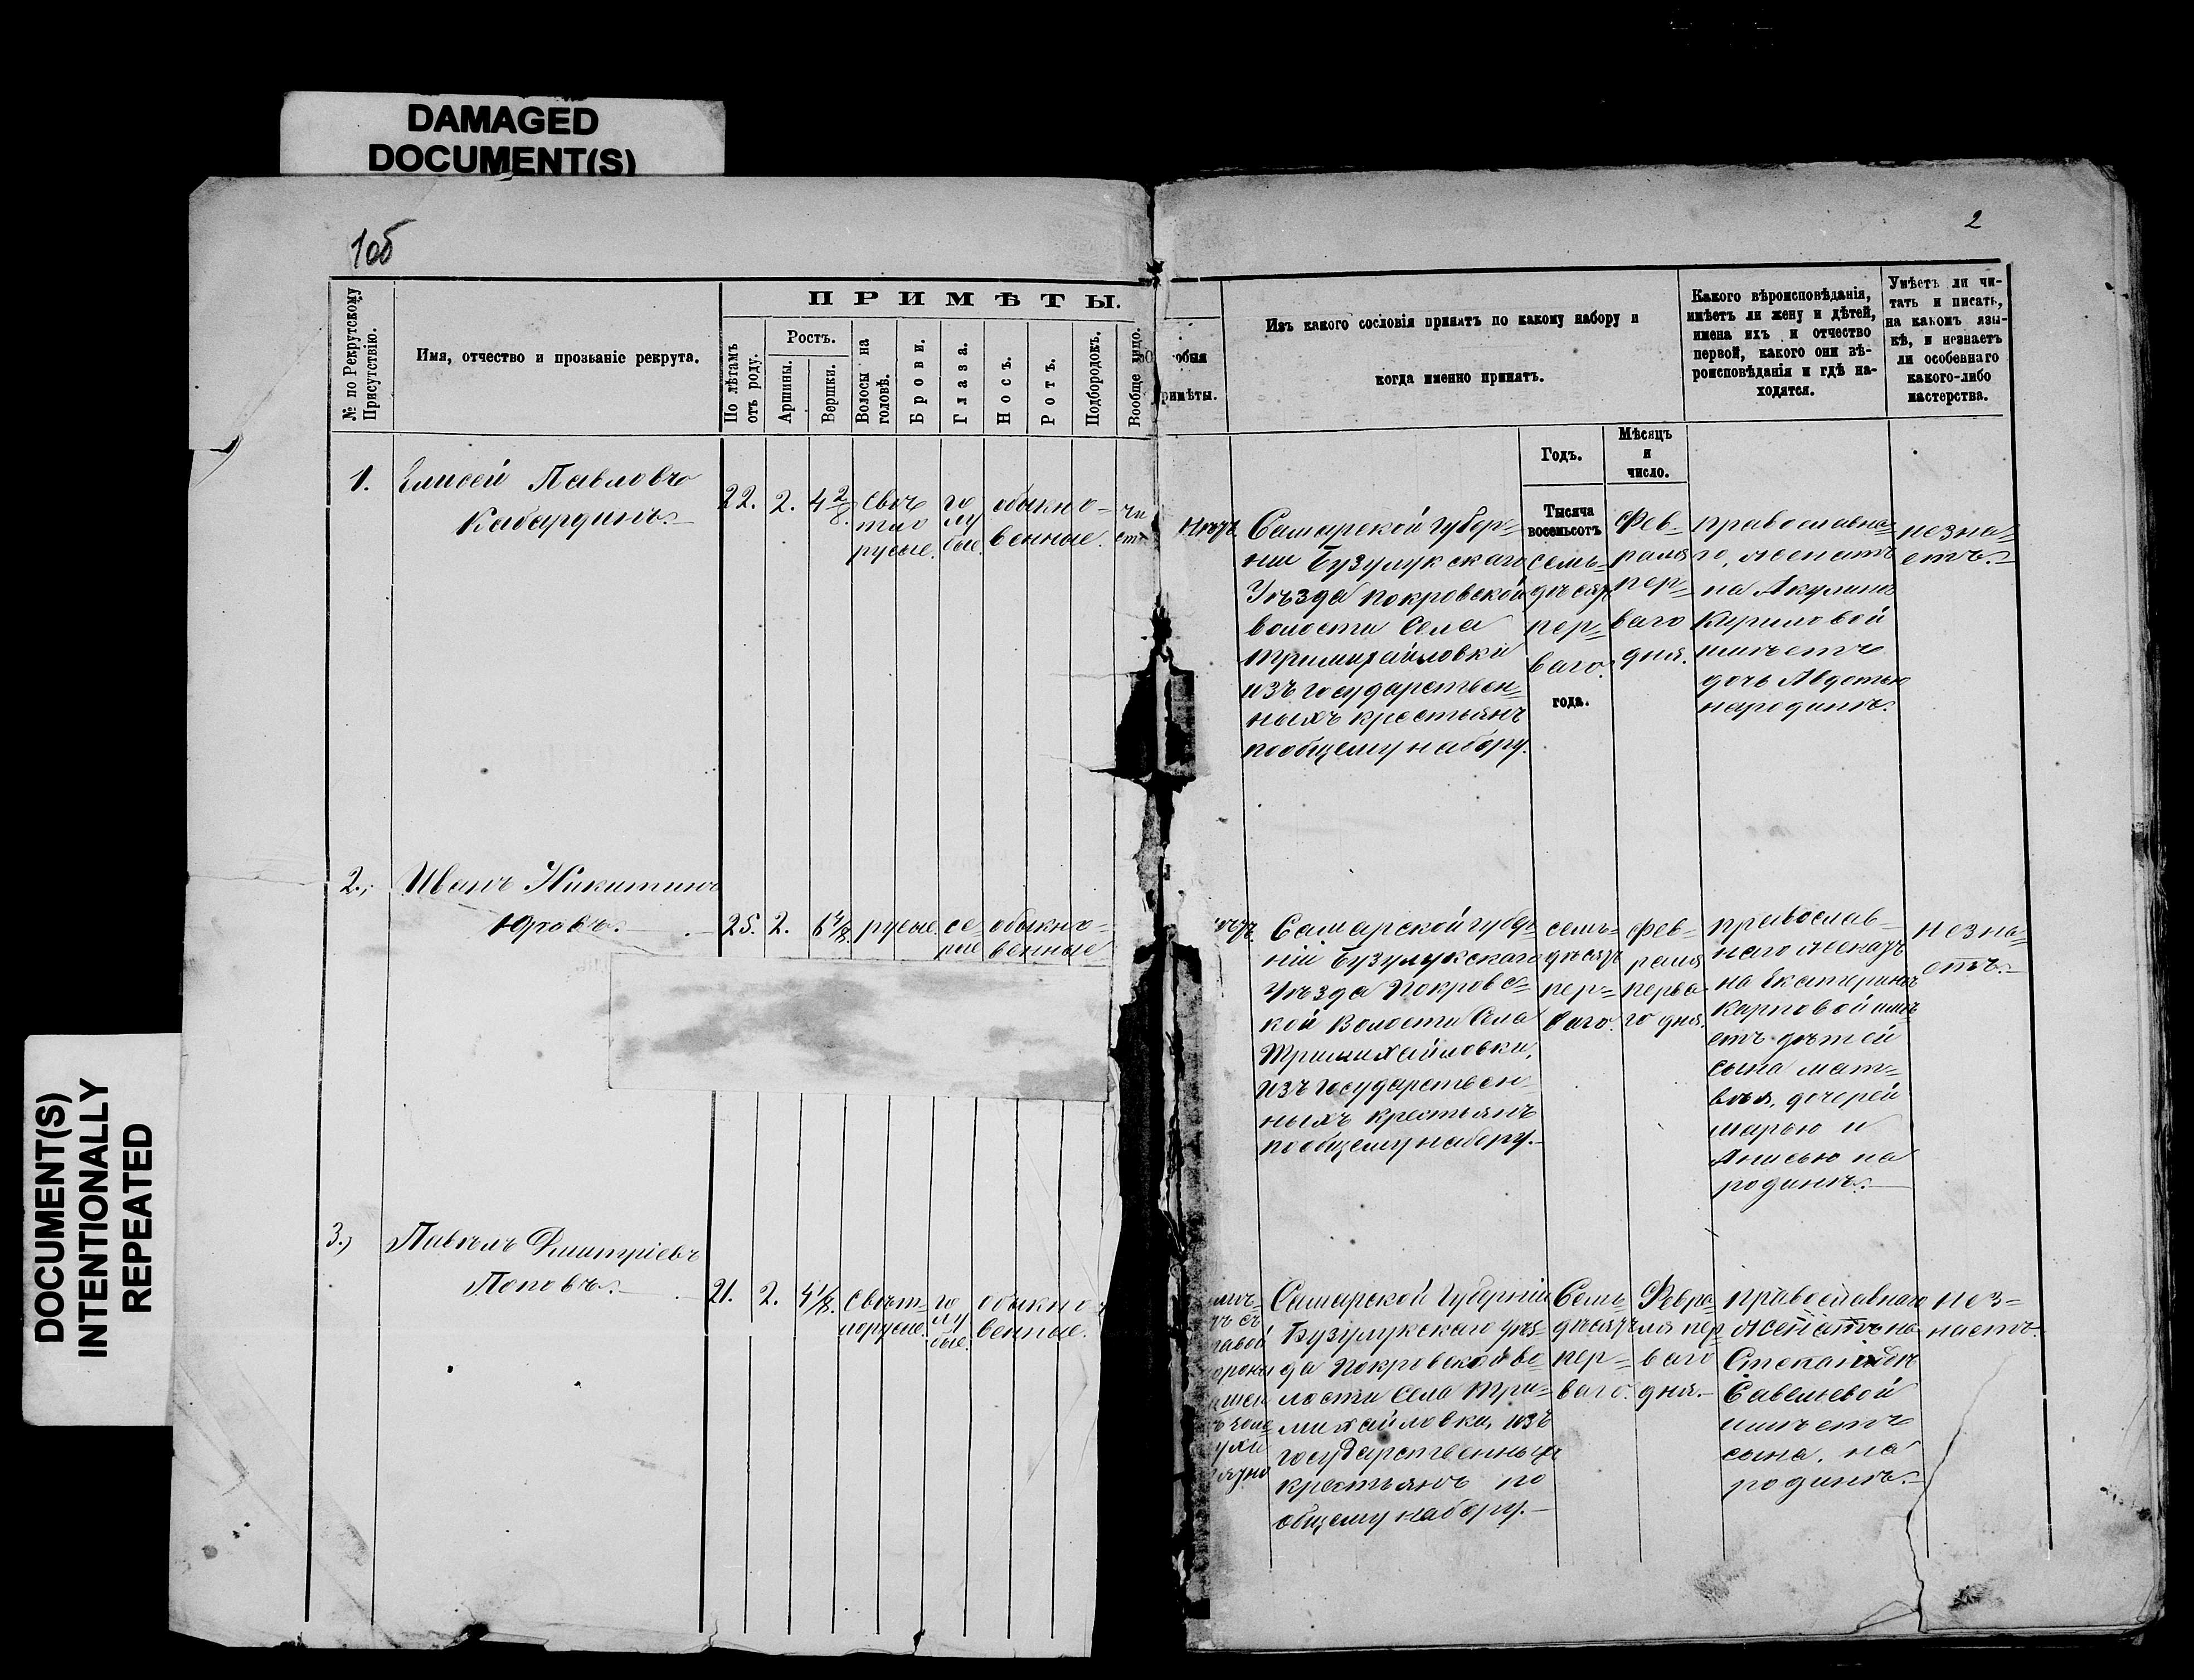 DAMAGED
DOCUMENT(S)
DOCUMENT(S)
INTENTIONALLY
REPEATED
1об
2
№ по Рекрутскому
Присутствію.
Имя, отчество и прозьаніе рекрута.
ПРИМѢТЫ.
По лѣтамъ
отъ роду.
Ростъ.
Аршины.
Вершки.
Волосы на
головѣ.
Брови.
Глаза.
Носъ.
Ротъ.
Подбородокъ.
Вообще лицо.
обыя
римѣты.
Изъ какого сословія принятъ по какому набору и
когда именно принятъ.
Годъ.
Мѣсяцъ
и
число.
Какого вѣроисповѣданія,
имѣетъ ли жену и дѣтей,
имена ихъ и отчество
первой, какого они вѣ-
роисповѣданія и гдѣ на-
ходятся.
Умѣетъ ли чи-
тать и писать,
на какомъ язы-
кѣ, и незнаетъ
ли особеннаго
какого-либо
мастерства.
1.
Елисей Павловъ
Кабардинъ.
22.
2.
4 2/8.
свѣ
тло
русые.
го
лу
бые.
обыкно-
венные.
чи
ст
Самарской губер-
ніи Бузулукскаго
Уѣзда покровской
волости Села
Тримихайловки
изъ государствен-
ныхъ крестьянъ
пообщему набору.
Тысяча
восемьсотъ
семь-
десятъ
пер-
ваго.
года.
Фев-
раля
пер-
ваго
дня.
православна-
го, женатъ
на Акулинѣ
Кириловой
имѣетъ
дочь Авдотью
народинѣ.
незна-
етъ.
2.,
Иванъ Никитинъ
Юровъ.
25.
2.
6 4/8.
русые.
се
рые
обыкно-
венные
Самарской губер
ніи Бузулукскаго
Уѣзда Покровс-
кой Волости Села
Тримихайловки,
изъ государствен
ныхъ крестьянъ
пообщему набору.
семь-
десятъ
пер-
ваго.
фев-
раля
перва
го дня.
православ-
наго женатъ
на Екатеринѣ
Карповой имѣ
етъ дѣтей
сына мат-
вѣя, дочерей
марью и
Анисью на
родинѣ.
незна-
етъ.
3.,
Павелъ Дмитріевъ
Поповъ.
21.
2.
4 1/8.
свѣт-
лорусые.
го
лу
бые.
обыкно
венные.
Самарской Губерніи
Бузулукскаго уѣз-
да Покровской во
лости Села Три-
михайловки, изъ
государственныхъ
крестьянъ по
общему набору.
Семь-
десятъ
пер-
ваго.
Февра-
ля пер
ваго
дня.
православнаго
женатъ на
Савельевой
имѣетъ
сына, на
родинѣ.
нез-
наетъ.